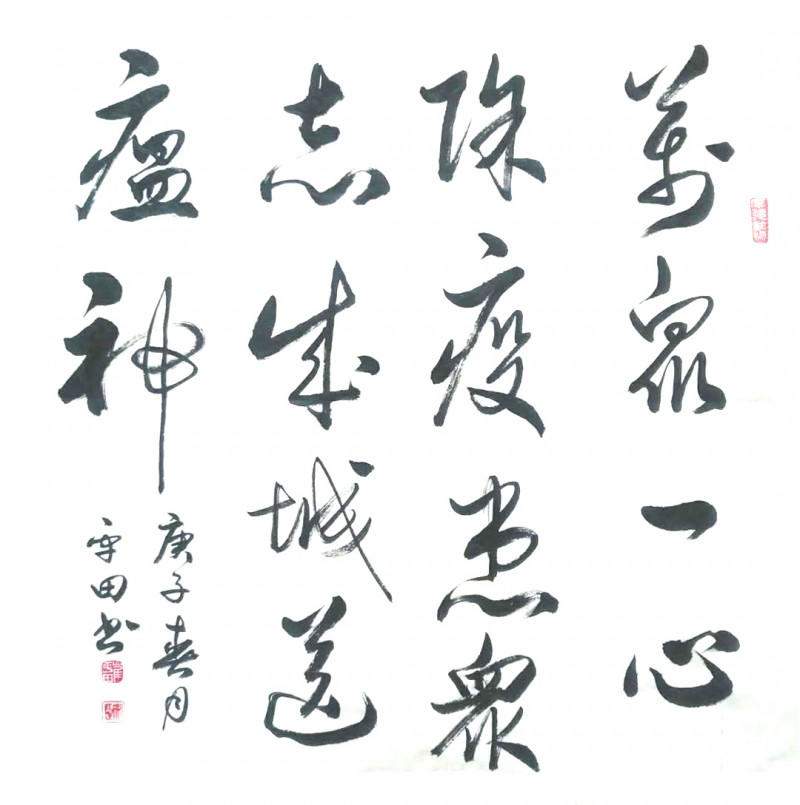 萬眾一心
除疫患眾
志成城送
瘟神
庚子春月
平田书